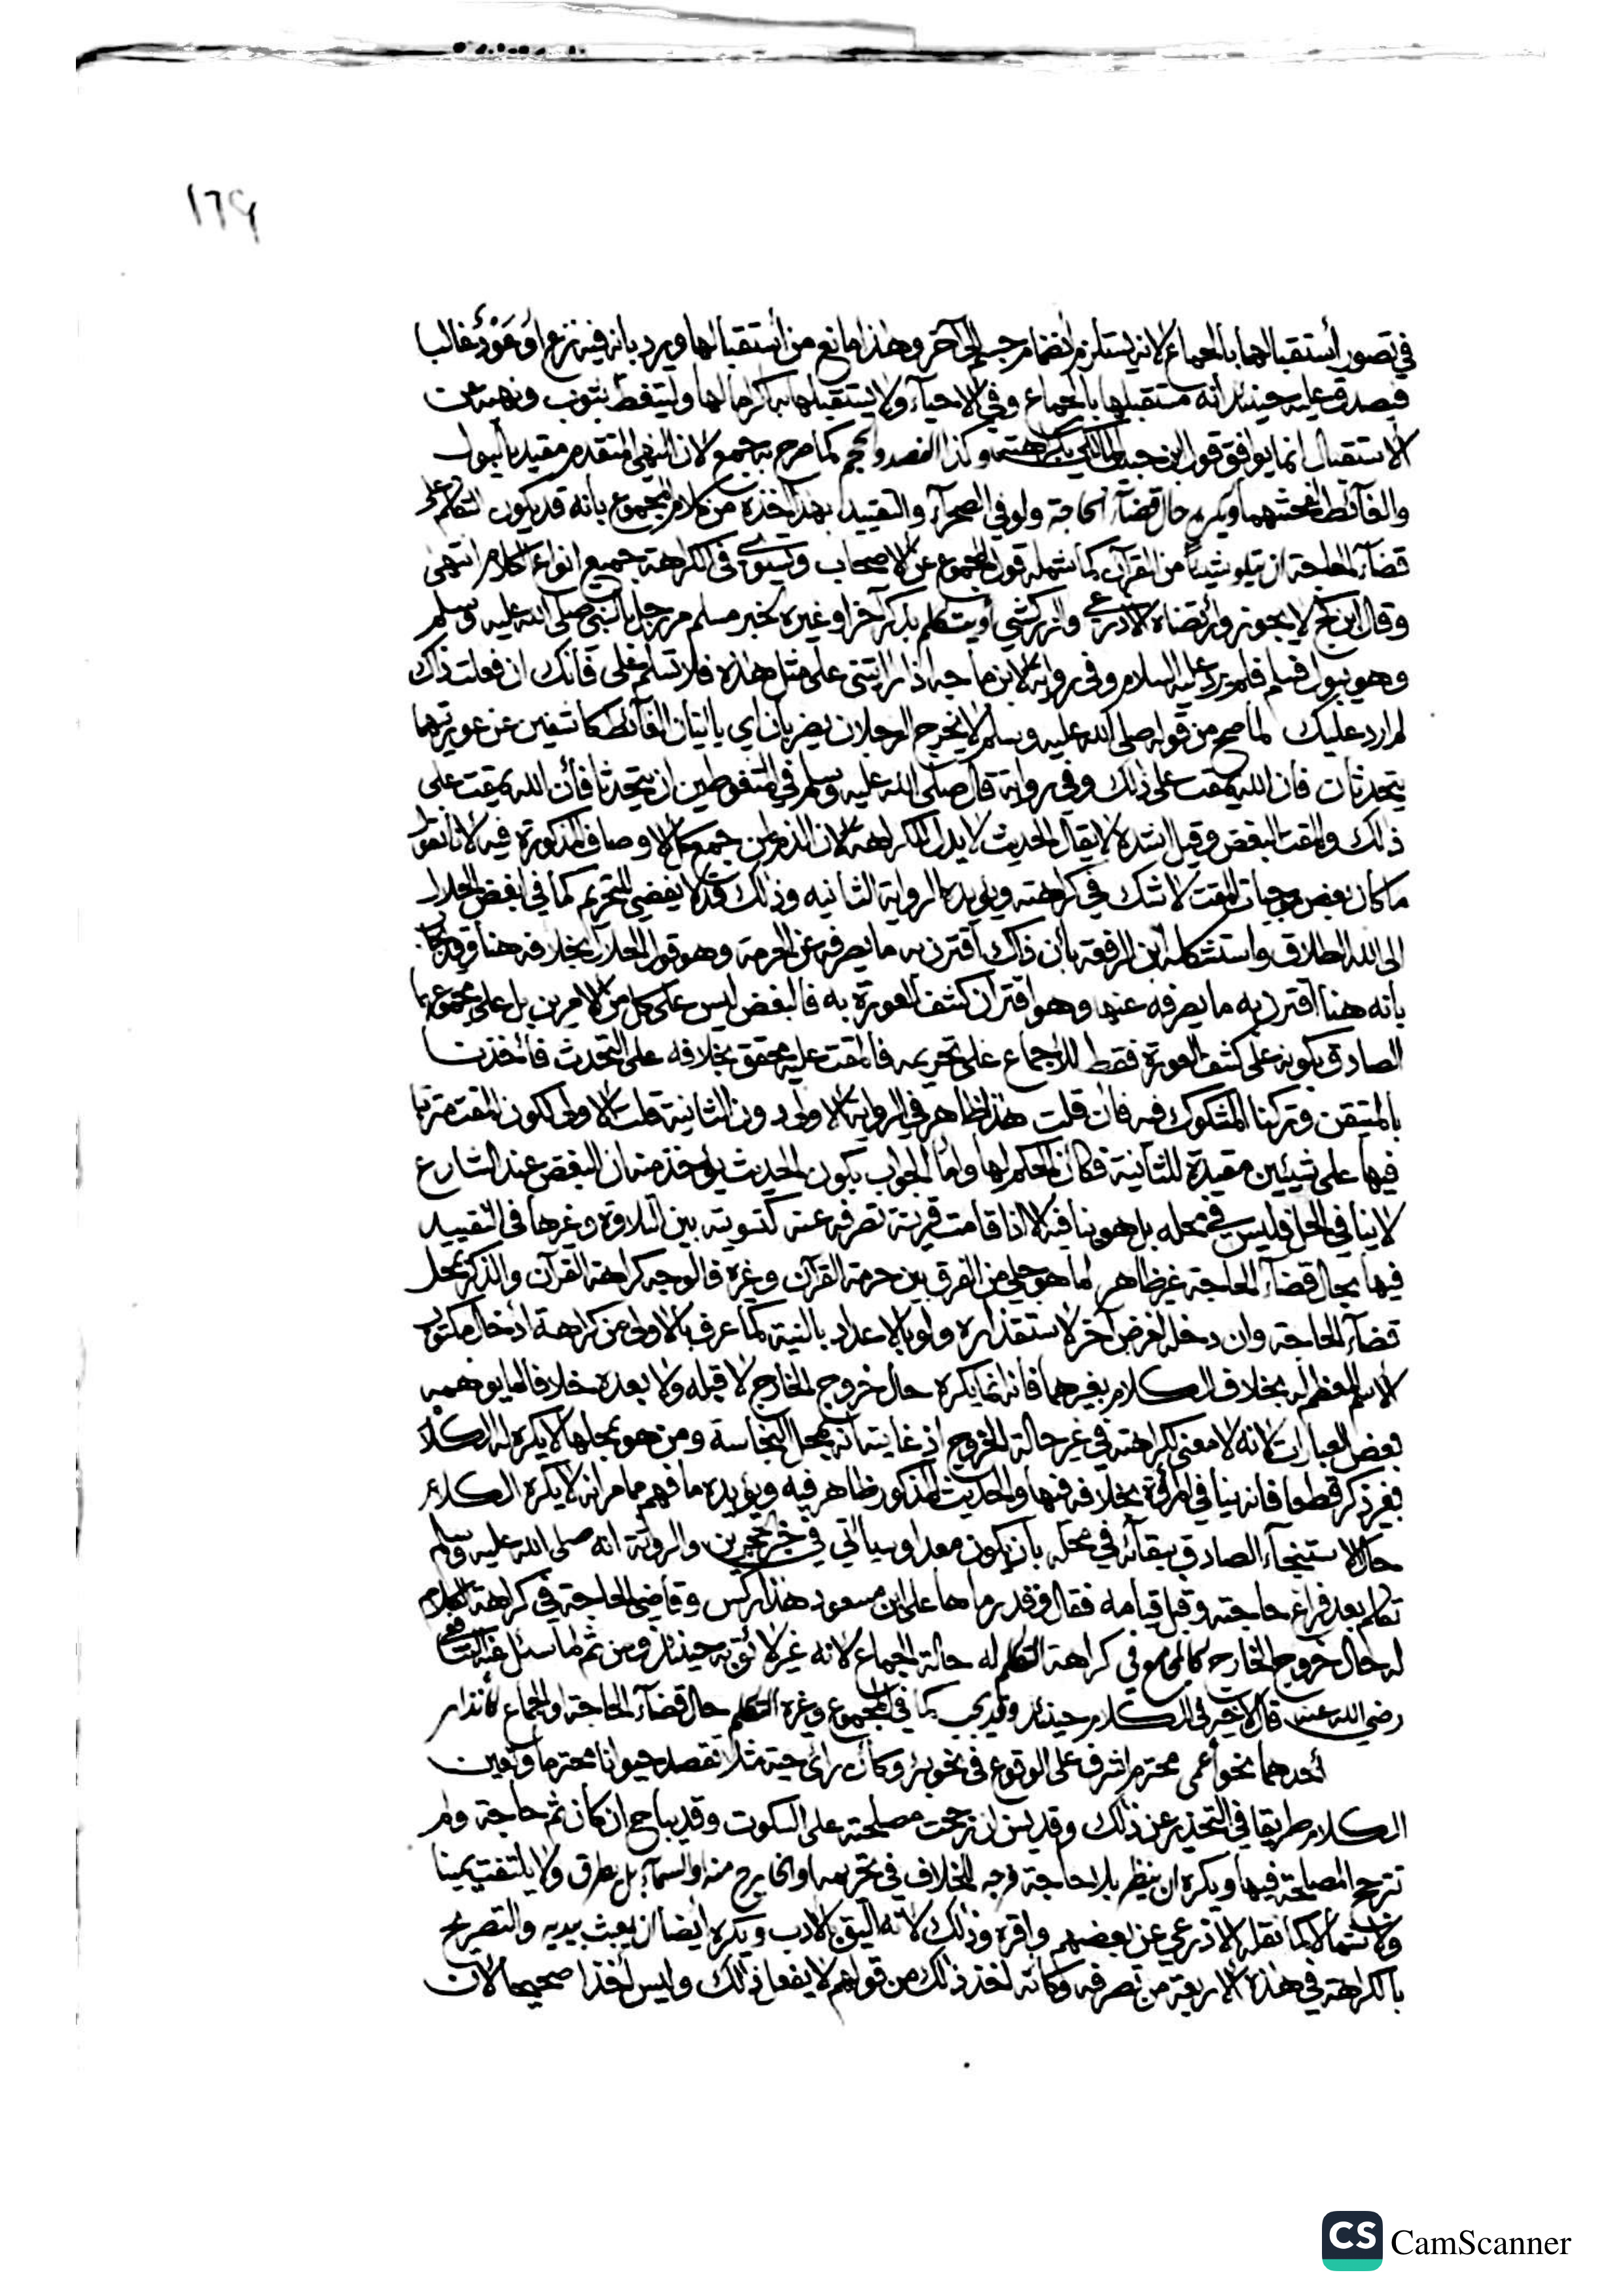 ١٦٩
في تصور أستقبالهما بالجماع لانه يستلزم انضمام جسم الى آخر وهذا مانع من أستقبالها ويرد بانه فيه نزع أو عَوْدٌ غالبا
فيصدق عليه حينئذ أنه مستقبلها بالجماع وفي الاحياء ولا يستقبلها به اكراما لها وليتغط بثوب ونهيه عن
الاستقبال انما يوافق قول ابن حبيب المالكي بكراهته وكذا الفصد والحجم كما صرح به جمع لان النهى المتقدم مقيد بالبول
والغائط لفحشهما ويكره حال قضآء الحاجة ولو في الصحرآء والتقييد بهذا اخذه من كلام المجموع بانه قد يكون التكلم على
قضآء الحاجة ان يتلو شيئًا من القرآن كما شمله قول المجموع عن الاصحاب ويستوي في الكراهة جميع انواع الكلام انتهى
وقال ابن كج لا يجوز وارتضاه الاذرعي والزركشي أو يتكلم بذكر آخر او غيره لخبر مسلم مر رجل بالنبي صلى الله عليه وسلم
وهو يبول فسلم فلم يرد عليه السلام وفي رواية لابن ماجه اذا رايتني على مثل هذه فلا تسلم علي فانك ان فعلت ذاك
لم ارد عليك لما صح من قوله صلى الله عليه وسلم لا يخرج الرجلان يضربان اي ياتيان الغائط كاشفين عن عورتهما
يتحدثان فان الله يمقت على ذلك وفي رواية قال صلى الله عليه وسلم في المتغوطين ان يتحدثا فأن الله يمقت على
ذلك والمقت البغض وقيل أشده لا يقال الحديث لا يدل للكراهة لان الذم لمن جمع كل الاوصاف المذكورة فيه لانا نقول
ما كان بعض موجبات المقت لا شك في كراهته ويؤيده الرواية الثانيه وذلك قد لا يفضي للتحريم كما في ابغض الحلال
الى الله الطلاق واستشكله ابن الرفعة بأن ذاك أقترن به ما يصرفه عن الحرمة وهو قوله الحلال بخلافه هنا وقد يجاب
بانه هنا اقترن به ما يصرفه عنها وهو اقتران كشف العورة به فالبغض ليس على كل من الامرين بل على مجموعهما
الصادق بكونه على كشف العورة فقط للاجماع على تحريمه فالمقت عليه محقق بخلافه على التحدث فأخذنا
بالمتيقن وتركنا المشكوك فيه فأن قلت هذا ظاهر في الرواية الاولى دون الثانية قلت الاولى لكون المقت مترتبا
فيها على شيئين مقيدة للثانية فكان الحكم لها واما الجواب بكون الحديث يؤخذ منه ان البغض عند الشارع
لا ينافي الحل فليس في محله بل هو ينافيه الا اذا قامت قرينة تصرفه عنه كتسويته بين التلاوة وغيرها في التقييد
فيها بحال قضآء الحاجة غير ظاهر لما هو جلي من الفرق بين حرمة القرآن وغيره فالوجه كراهة القرآن والذكر بمحل
قضآء الحاجة وان دخل لغرض آخر لاستقذاره ولو بالاعداد بالنية كما عرف بالاولى من كراهة ادخال مكتوب
الاسم المعظم له بخلاف الكلام بغيرهما فانه انما يكره حال خروج الخارج لا قبله ولا بعده خلافا لما يوهمه
بعض العبارات لانه لا معنى لكراهته في غير حالة الخروج اذ غايته انه بمحل النجاسة ومن هو بمحلها لا يكره له الكلام
بغير ذكر قطعا فانه ينافي المروة بخلافه فيها والحديث المذكور ظاهر فيه ويؤيده ما فهم مما مر انه لا يكره الكلام
حال الاستنجآء الصادق ببقائه في محله بان يكون معدا وسياتي في خبر الحجرين والروثة انه صلى الله عليه وسلم
تكلم بعد فراغ حاجته وقبل قيامه فقال وقد رماها على ابن مسعود هذا ركس وقاضي الحاجة في كراهة الكلام
له حال خروج الخارج كالمجامع في كراهة التكلم له حالة الجماع لانه غير لائق به حينئذ ومن ثم لما سئل عنه الشافعي
رضي الله عنه قال لا خير في الكلام حينئذ وقد يجب كما في المجموع وغيره التكلم حال قضآء الحاجة او الجماع لأنذار
أحدهما نحو أعمى محترم اشرف على الوقوع في نحو بئر وكأن رأى حية مثلا تقصد حيوانا محترما وتعين
الكلام طريقا في التحذير عن ذلك وقد يسن ان رجحت مصلحته على السكوت وقد يباح ان كان ثم حاجة ولم
تترجح المصلحة فيها ويكره ان ينظر بلا حاجة فرجه للخلاف في تحريمه او الخارج منه او السمآء بل يطرق ولا يلتفت يمينا
ولا شمالا كما نقله الاذرعي عن بعضهم واقره وذلك لانه أليق بالادب ويكره أيضا ان يعبث بيديه والتصريح
بالكراهة في هذه الاربعة من تصرفه وكانه اخذ ذلك من قولهم لا يفعل ذلك وليس أخذا صحيحا لان
CS CamScanner